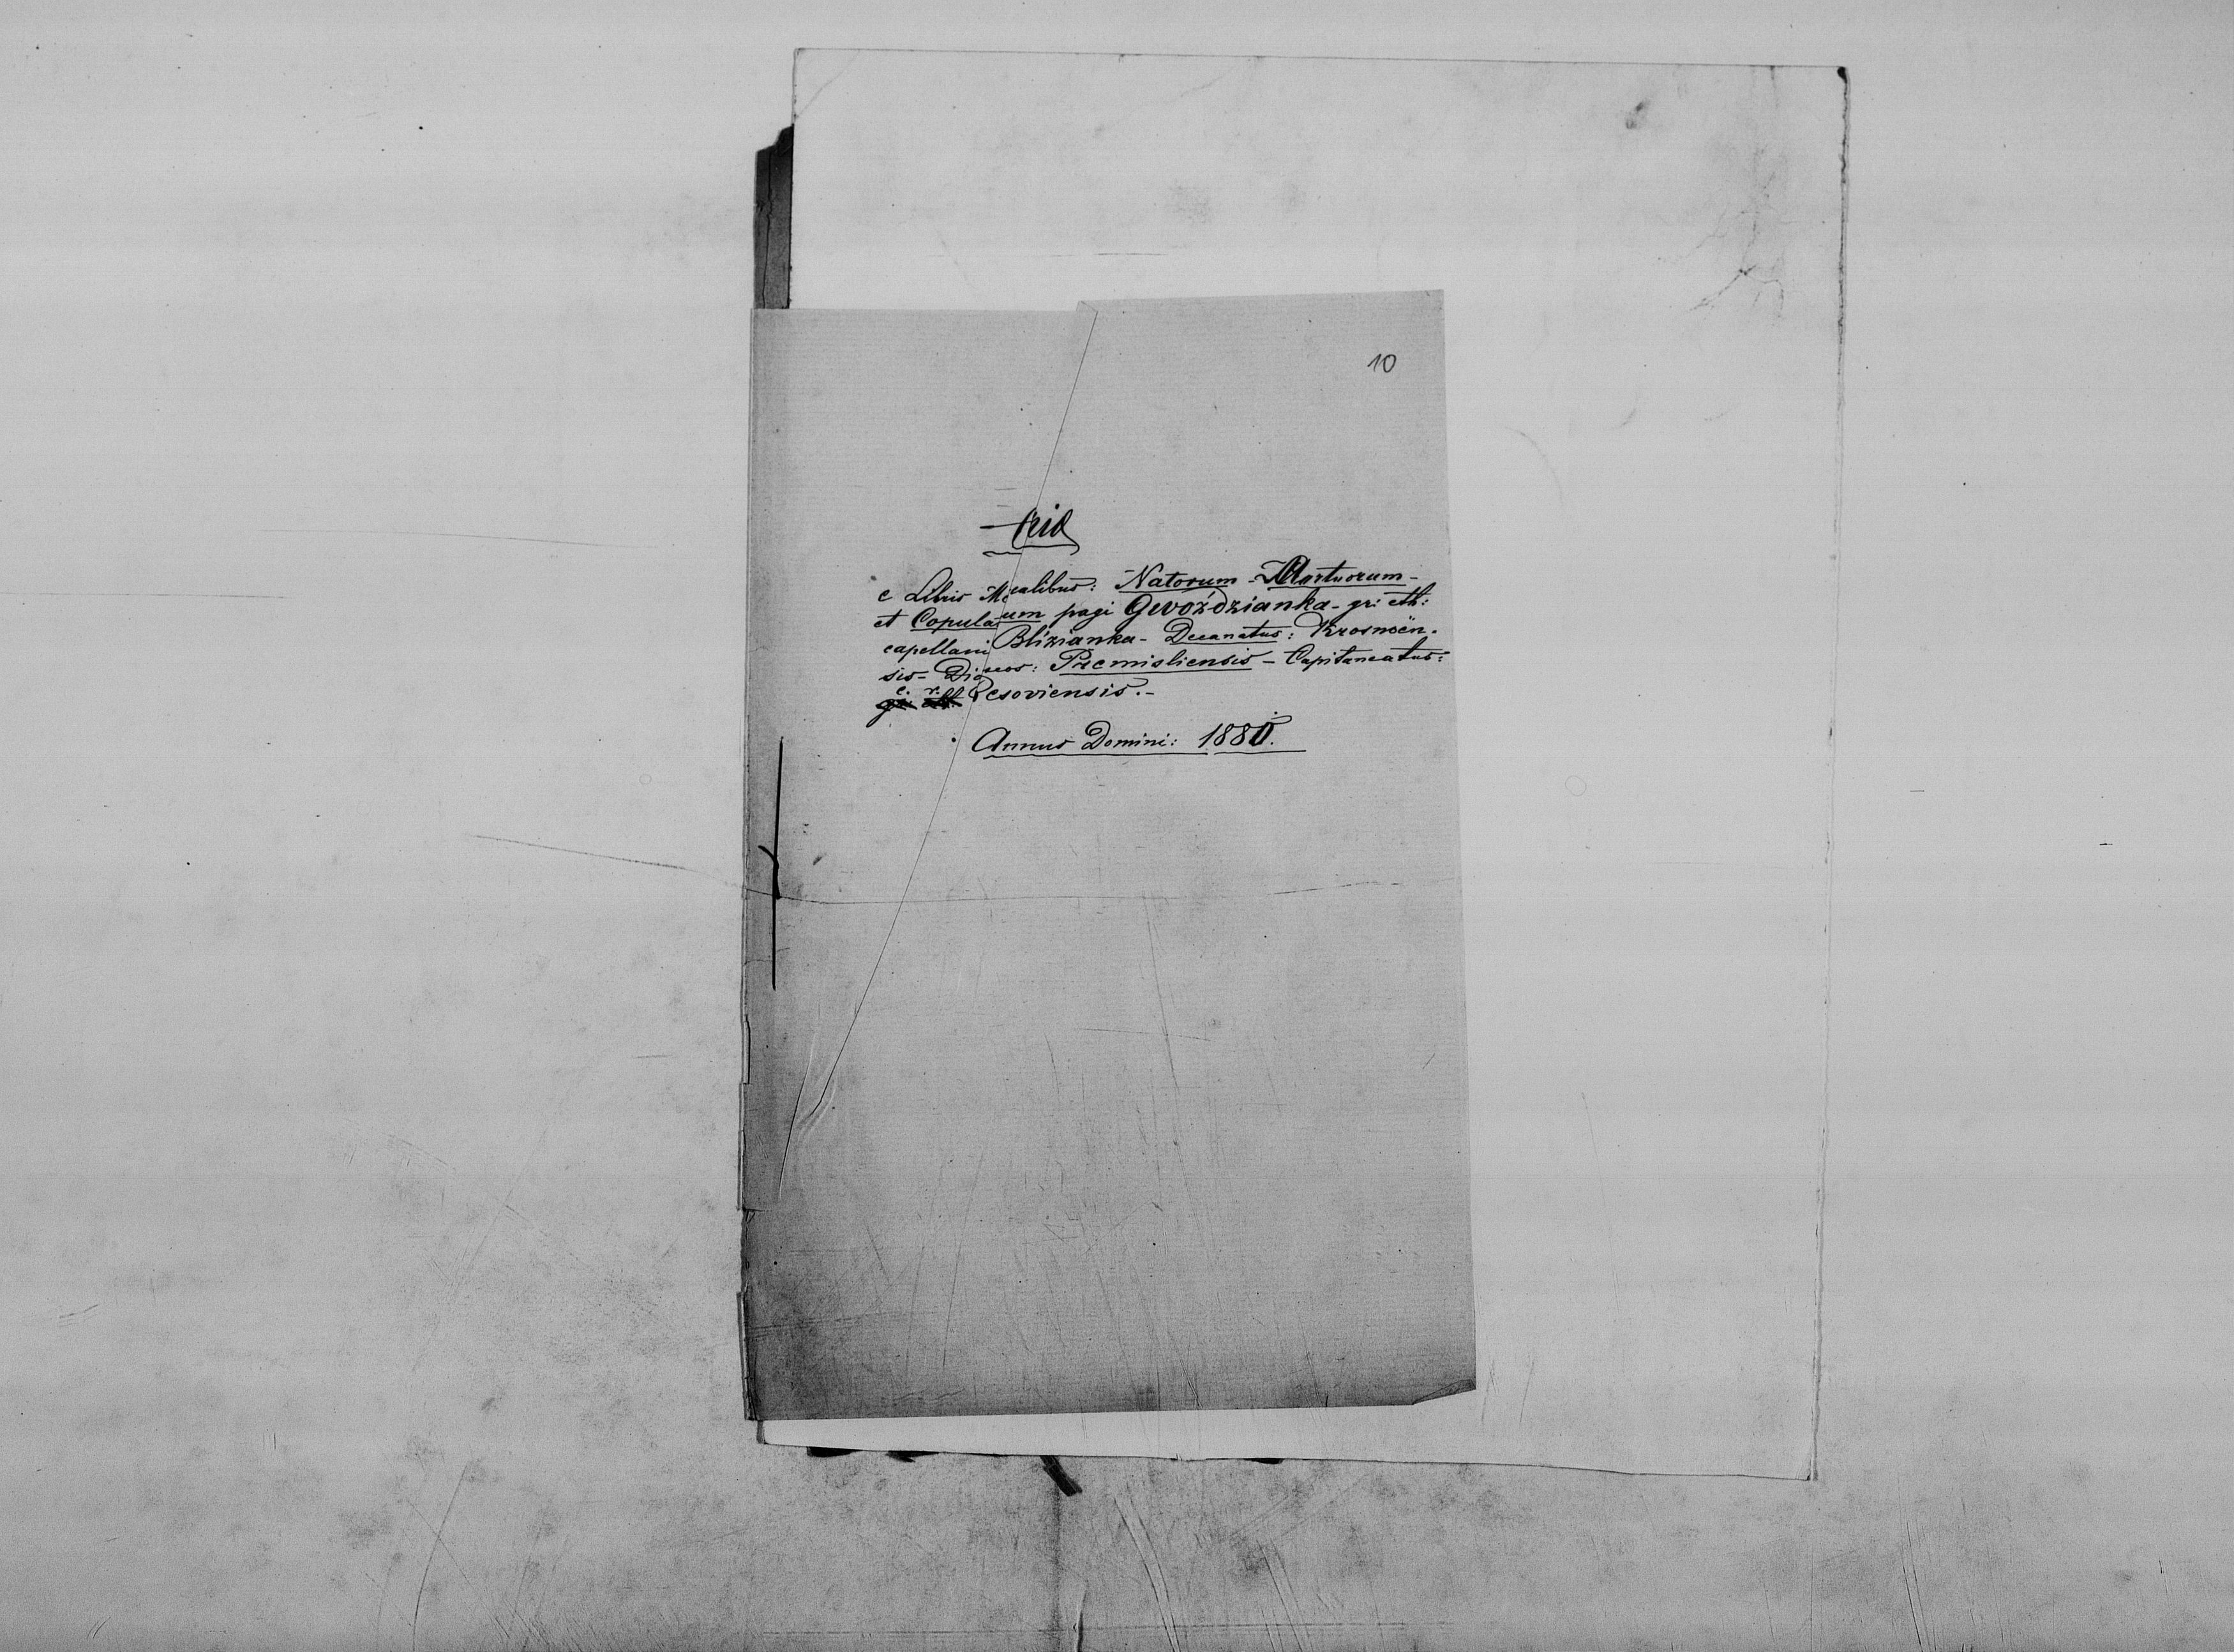 10
e Libris M calibus: Natorum - Mortuorum -
et Copula um pagi Gwoździanka - gr: cth:
capellani Blizianka - Decanatus: Krosnoën.
sis - Dio eos: Premisliensis - Capitaneatus:
c. r. Resoviensis. -
Annus Domini: 1880.